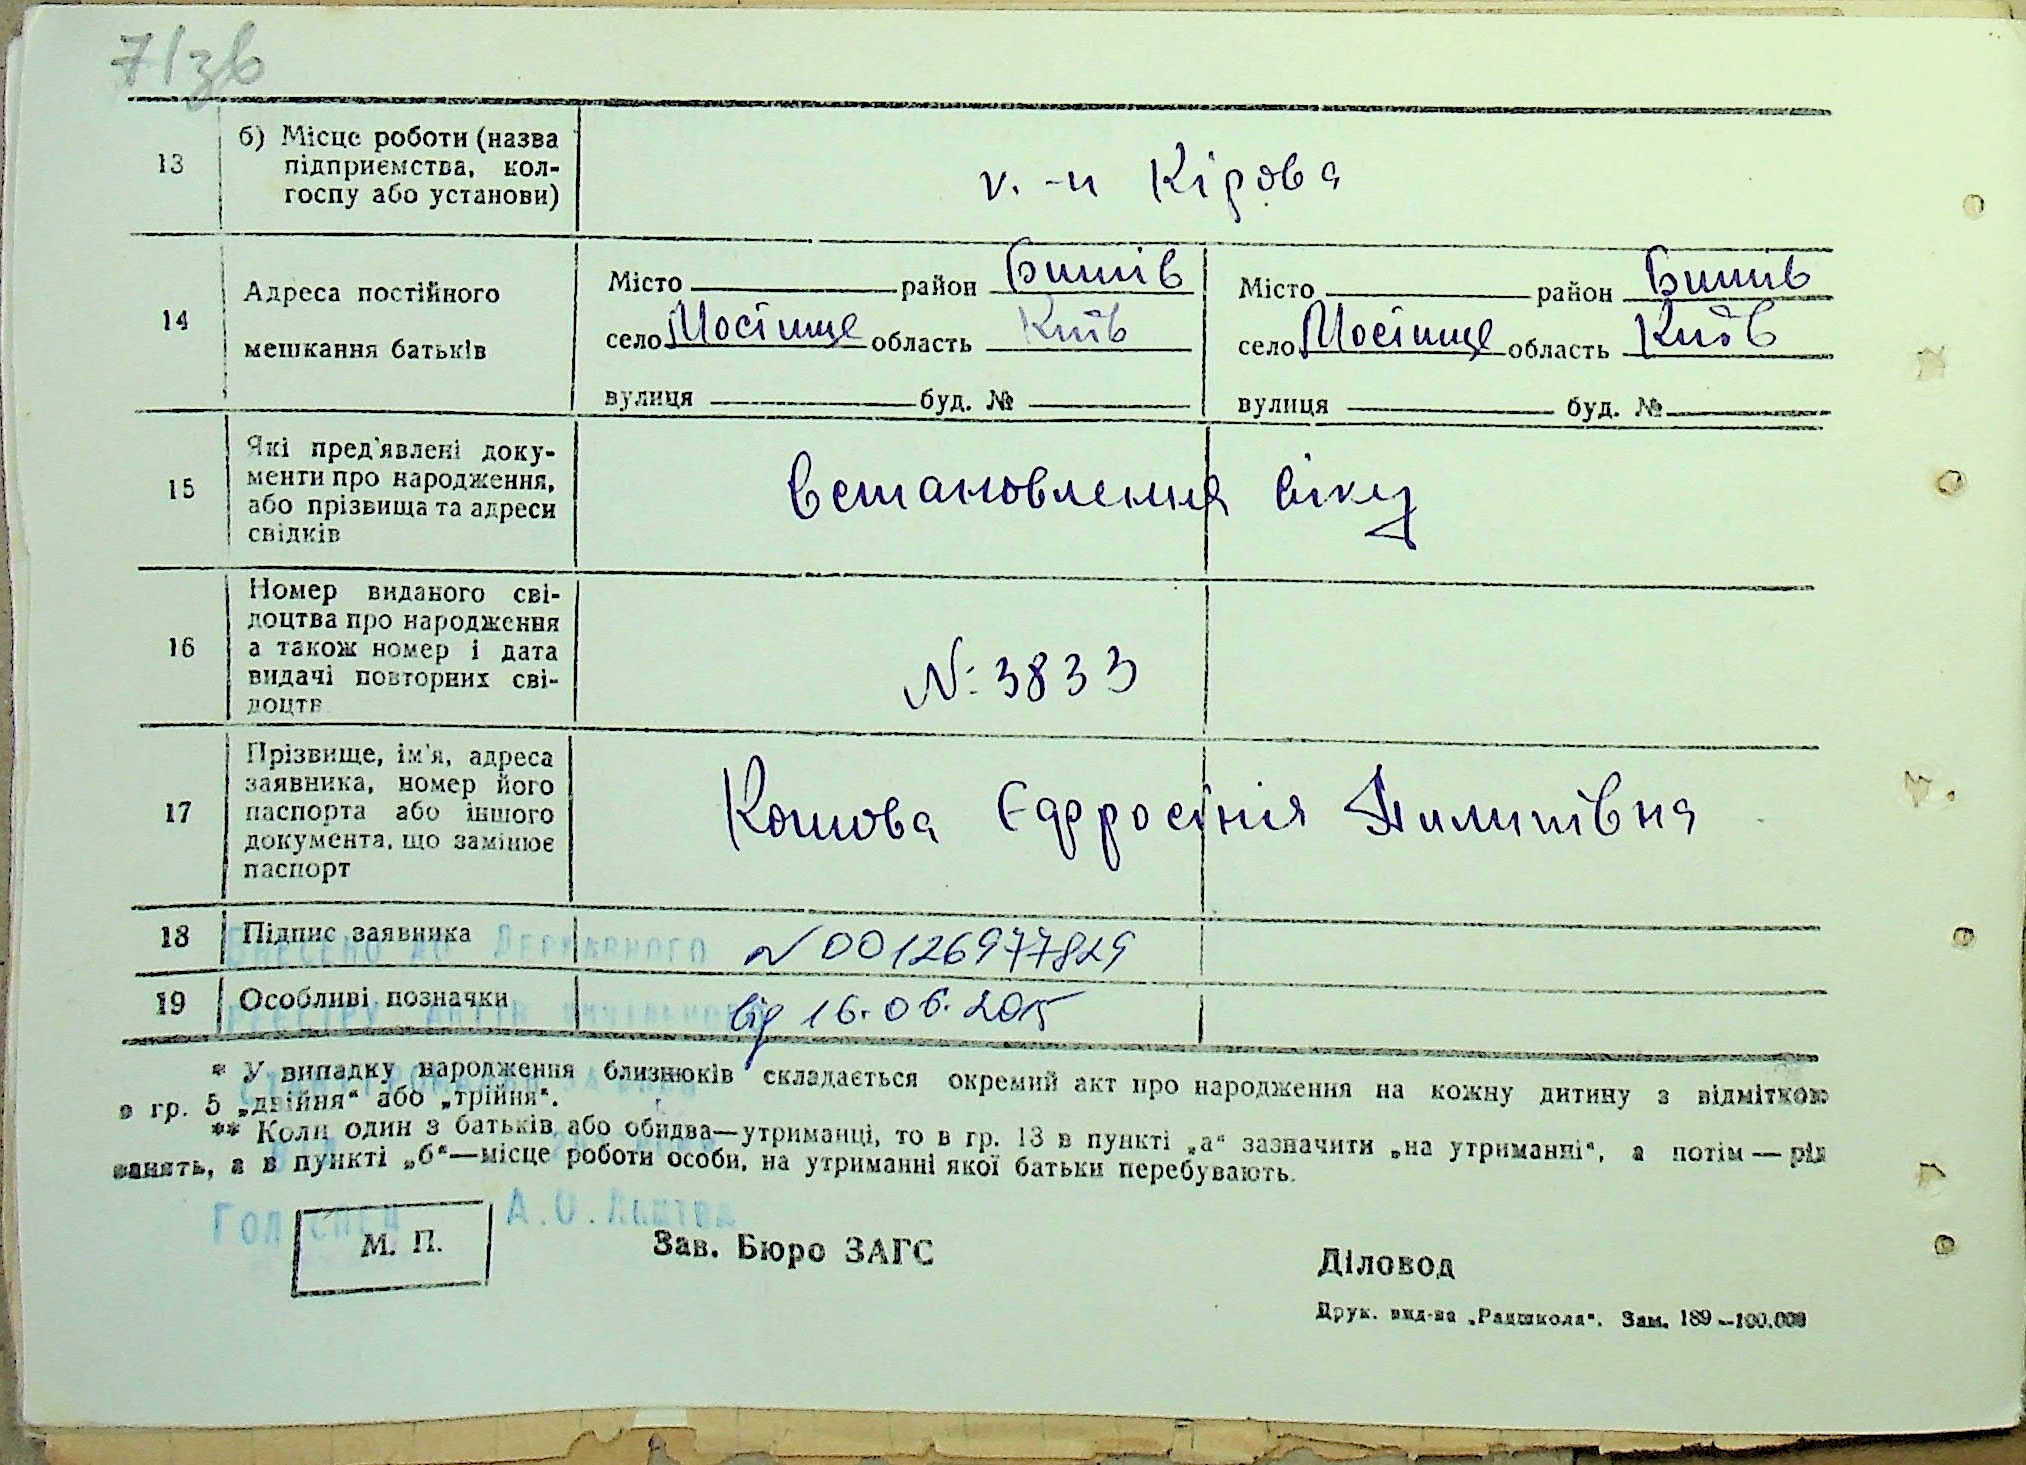 71зв
13
б) Місце роботи (назва
підприємства, кол-
госпу або установи)
к. -п Кірова
14
Адреса постійного
мешкання батьків
Місто район Бишів
село Мостище область Київ
вулиця буд. №
Місто район Бишів
село Мостище область Київ
вулиця буд. №
15
Які пред'явлені доку-
менти про народження,
або прізвища та адреси
свідків
встановлення віку
16
Номер виданого сві-
доцтва про народження
а також номер і дата
видачі повторних сві-
доцтв
№ 3833
17
Прізвище, ім'я, адреса
заявника, номер його
паспорта або іншого
документа, що замінює
паспорт
Кошова Єфросінія Пилипівна
18
Підпис заявника
N 00126977829
19
Особливі позначки
від 16.06.2015
Внесено до Державного
реєстру актів цивільного
* У випадку народження близнюків складається окремий акт про народження на кожну дитину з відміткою
в гр. 5 „двійня“ або „трійня“.
** Коли один з батьків або обидва—утриманці, то в гр. 13 в пункті „а“ зазначити „на утриманні“, а потім — рід
занять, а в пункті „б“—місце роботи особи, на утриманні якої батьки перебувають.
А.О.
М. П.
Зав. Бюро ЗАГС
Діловод
Друк. вид-ва „Радшкола“. Зам. 189—100.000